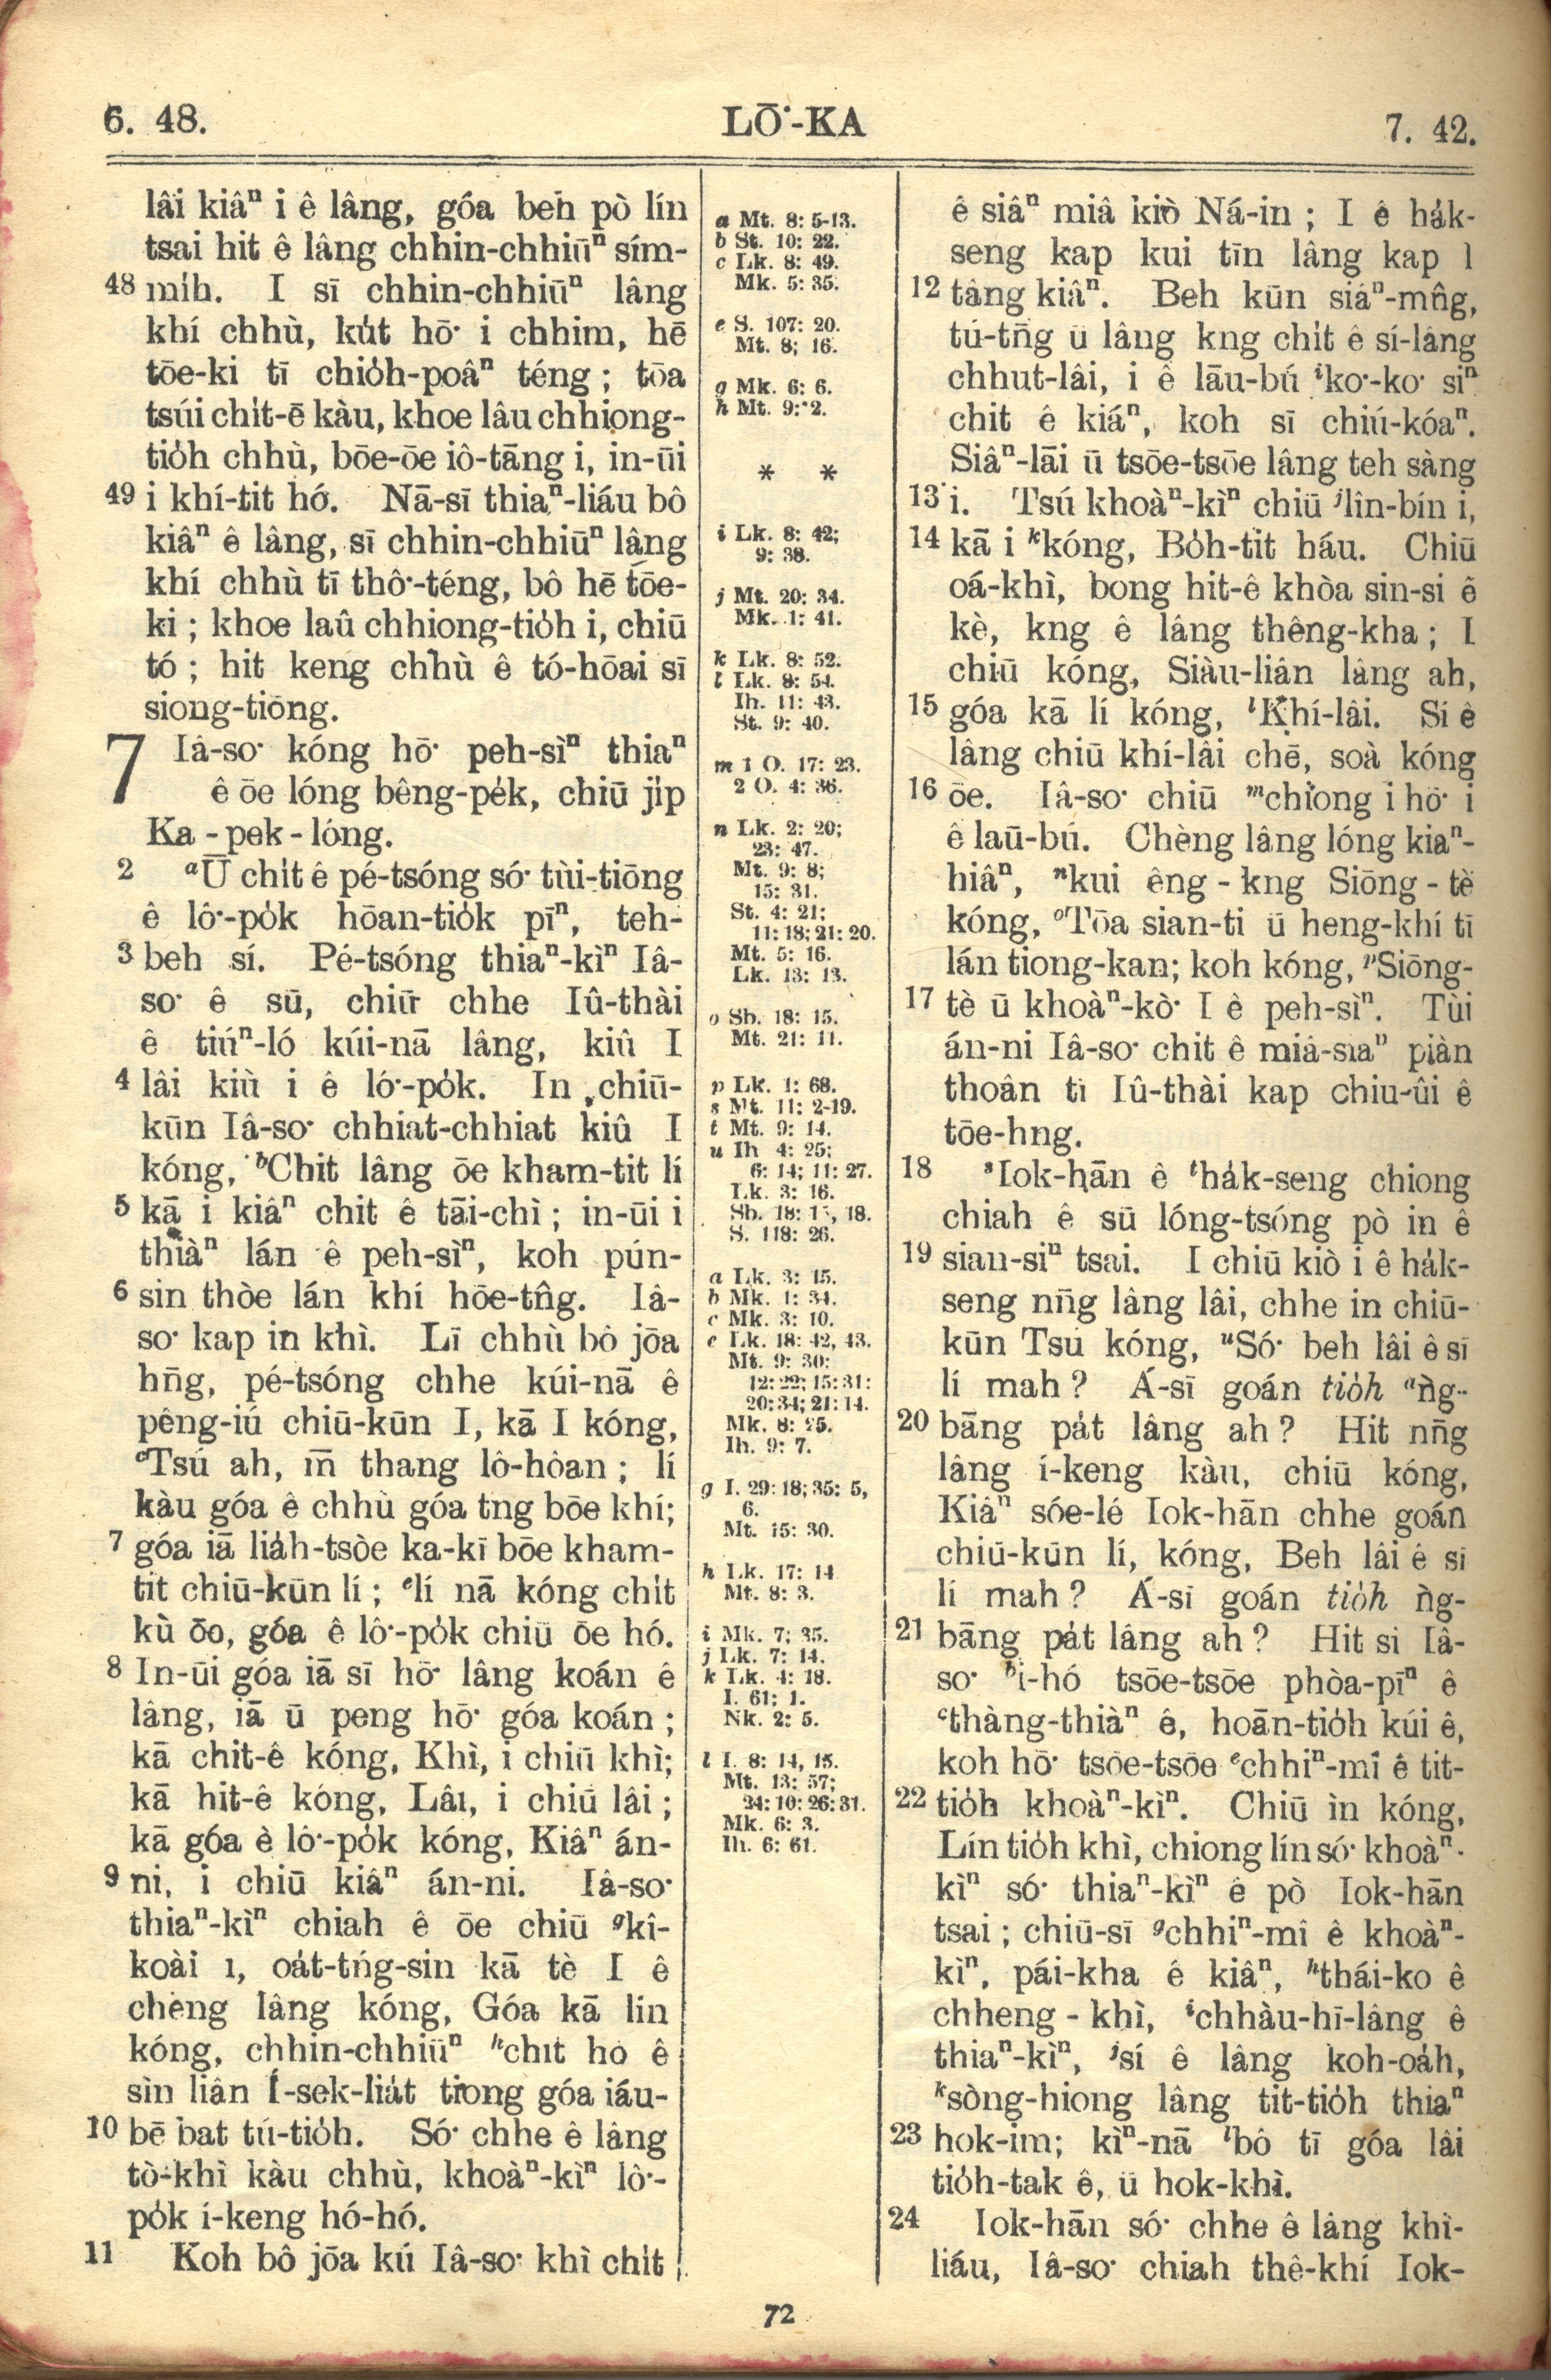 6. 48.
LŌ͘-KA
7. 42.
lâi kiâⁿ i ê lâng, góa beh pò lín
tsai hit ê lâng chhin-chhiūⁿ sím-
48 mi̍h. I sī chhin-chhiūⁿ lâng
khí chhù, ku̍t hō͘ i chhim, hē
tōe-ki tī chio̍h-poâⁿ téng ; tōa
tsúi chi̍t-ē kàu, khoe lâu chhiong-
tio̍h chhù, bōe-ōe iô-tāng i, in-ūi
49 i khí-tit hó. Nā-sī thiaⁿ-liáu bô
kiâⁿ ê lâng, sī chhin-chhiūⁿ lâng
khí chhù tī thô͘-téng, bô hē tōe-
ki ; khoe laû chhiong-tio̍h i, chiū
tó ; hit keng chhù ê tó-hōai sī
siong-tiōng.
7 Iâ-so͘ kóng hō͘ peh-sìⁿ thiaⁿ
ê ōe lóng bêng-pe̍k, chiū ji̍p
Ka - pek - lóng.
2 ᵃŪ chi̍t ê pé-tsóng só͘ tùi-tiōng
ê lô͘-po̍k hōan-tio̍k pīⁿ, teh-
3 beh sí. Pé-tsóng thiaⁿ-kìⁿ Iâ-
so͘ ê sū, chiū chhe Iû-thài
ê tiúⁿ-ló kúi-nā lâng, kiû I
4 lâi kiù i ê ló͘-po̍k. In chiū-
kūn Iâ-so͘ chhiat-chhiat kiû I
kóng, ᵇChit lâng ōe kham-tit lí
5 kā i kiâⁿ chit ê tāi-chì ; in-ūi i
thiàⁿ lán ê peh-sìⁿ, koh pún-
6 sin thòe lán khí hōe-tn̂g. Iâ-
so͘ kap in khì. Lī chhù bô jōa
hn̄g, pé-tsóng chhe kúi-nā ê
pêng-iú chiū-kūn I, kā I kóng,
ᶜTsú ah, m̄ thang lô-hôan ; lí
kàu góa ê chhù góa tng bōe khí;
7 góa iā lia̍h-tsòe ka-kī bōe kham-
tit chiū-kūn lí ; ᵉlí nā kóng chi̍t
kù ōo, góa ê lô͘-po̍k chiū ōe hó.
8 In-ūi góa iā sī hō͘ lâng koán ê
lâng, iā ū peng hō͘ góa koán ;
kā chit-ê kóng, Khì, i chiū khì;
kā hit-ê kóng, Lâi, i chiū lâi ;
kā góa è lô͘-po̍k kóng, Kiâⁿ án-
9 ni, i chiū kiâⁿ án-ni. Iâ-so͘
thiaⁿ-kìⁿ chiah ê ōe chiū ᵍkî-
koài i, oa̍t-tńg-sin kā tè I ê
chèng lâng kóng, Góa kā lín
kóng, chhin-chhiūⁿ ʰchit hō ê
sìn liân Í-sek-lia̍t tiong góa iáu-
10 bē bat tú-tio̍h. Só͘ chhe ê lâng
tò-khì kàu chhù, khoàⁿ-kìⁿ lô͘-
po̍k í-keng hó-hó.
11 Koh bô jōa kú Iâ-so͘ khì chi̍t
a Mt. 8: 5-13.
b St. 10: 22.
c Lk. 8: 49.
Mk. 5: 35.
e S. 107: 20.
Mt. 8; 16.
g Mk. 6: 6.
h Mt. 9: 2.
* *
i Lk. 8: 42;
9: 38.
j Mt. 20: 34.
Mk. 1: 41.
k Lk. 8: 52.
l Lk. 8: 54.
Ih. 11: 43.
St. 9: 40.
m 1 O. 17: 23.
2 O. 4: 36.
n Lk. 2: 20;
23: 47.
Mt. 9: 8;
15: 31.
St. 4: 21;
11: 18; 21: 20.
Mt. 5: 16.
Lk. 13: 13.
o Sb. 18: 15.
Mt. 21: 11.
p Lk. 1: 68.
s Mt. 11: 2-19.
t Mt. 9: 14.
u Ih 4: 25;
6: 14; 11: 27.
Lk. 3: 16.
Sb. 18: 15, 18.
S. 118: 26.
a Lk. 3: 15.
b Mk. 1: 34.
c Mk. 3: 10.
e Lk. 18: 42, 43.
Mt. 9: 30:
12: 22; 15: 31:
20: 34; 21: 14.
Mk. 8: 25.
Ih. 9: 7.
g I. 29: 18; 35: 5,
6.
Mt. 15: 30.
h Lk. 17: 14
Mt. 8: 3.
i Mk. 7; 35.
j Lk. 7: 14.
k Lk. 4: 18.
I. 61: 1.
Nk. 2: 5.
l I. 8: 14, 15.
Mt. 13: 57;
24: 10: 26: 31.
Mk. 6: 3.
Ih. 6: 61.
ê siâⁿ miâ kiò Ná-in ; I ê ha̍k-
seng kap kui tīn lâng kap I
12 tâng kiâⁿ. Beh kūn siâⁿ-mn̂g,
tú-tn̄g ū lâng kng chi̍t ê sí-lâng
chhut-lâi, i ê lāu-bú ⁱko͘-ko͘ siⁿ
chit ê kiáⁿ, koh sī chiú-kóaⁿ.
Siâⁿ-lāi ū tsōe-tsōe lâng teh sàng
13 i. Tsú khoàⁿ-kìⁿ chiū ʲlîn-bín i,
14 kā i ᵏkóng, Bo̍h-tit háu. Chiū
oá-khì, bong hit-ê khòa sin-si ê
kè, kng ê lâng thêng-kha ; I
chiū kóng, Siàu-liân lâng ah,
15 góa kā lí kóng, ˡKhí-lâi. Sí ê
lâng chiū khí-lâi chē, soà kóng
16 ōe. Iâ-so͘ chiū ᵐchiong i hō͘ i
ê laū-bú. Chèng lâng lóng kiaⁿ-
hiâⁿ, ⁿkui êng - kng Siōng - tè
kóng, ᵒTōa sian-ti ū heng-khí tī
lán tiong-kan; koh kóng, ᵖSiōng-
17 tè ū khoàⁿ-kò͘ I ê peh-sìⁿ. Tùi
án-ni Iâ-so͘ chit ê miâ-siaⁿ piàn
thoân tī Iû-thài kap chiu-ûi ê
tōe-hng.
18 ˢIok-hān ê ᵗha̍k-seng chiong
chiah ê sū lóng-tsóng pò in ê
19 sian-siⁿ tsai. I chiū kiò i ê ha̍k-
seng nn̄g lâng lâi, chhe in chiū-
kūn Tsú kóng, ᵘSó͘ beh lâi ê sī
lí mah ? Á-sī goán tio̍h ᵃǹg-
20 bāng pa̍t lâng ah ? Hit nn̄g
lâng í-keng kàu, chiū kóng,
Kiâⁿ sóe-lé Iok-hān chhe goán
chiū-kūn lí, kóng, Beh lâi ê sī
lí mah ? Á-sī goán tio̍h ǹg-
21 bāng pa̍t lâng ah ? Hit sî Iâ-
so͘ ᵇi-hó tsōe-tsōe phòa-pīⁿ ê
ᶜthàng-thiàⁿ ê, hoān-tio̍h kúi ê,
koh hō͘ tsōe-tsōe ᵉchhiⁿ-mî ê tit-
22 tio̍h khoàⁿ-kìⁿ. Chiū ìn kóng,
Lín tio̍h khì, chiong lín só͘ khoàⁿ-
kìⁿ só͘ thiaⁿ-kìⁿ ê pò Iok-hān
tsai ; chiū-sī ᵍchhiⁿ-mî ê khoàⁿ-
kìⁿ, pái-kha ê kiâⁿ, ʰthái-ko ê
chheng - khì, ⁱchhàu-hī-lâng ê
thiaⁿ-kìⁿ, ʲsí ê lâng koh-oa̍h,
ᵏsòng-hiong lâng tit-tio̍h thiaⁿ
23 hok-im; kìⁿ-nā ˡbô tī góa lâi
tio̍h-tak ê, ū hok-khì.
24 Iok-hān só͘ chhe ê lâng khì-
liáu, Iâ-so͘ chiah thê-khí Iok-
72